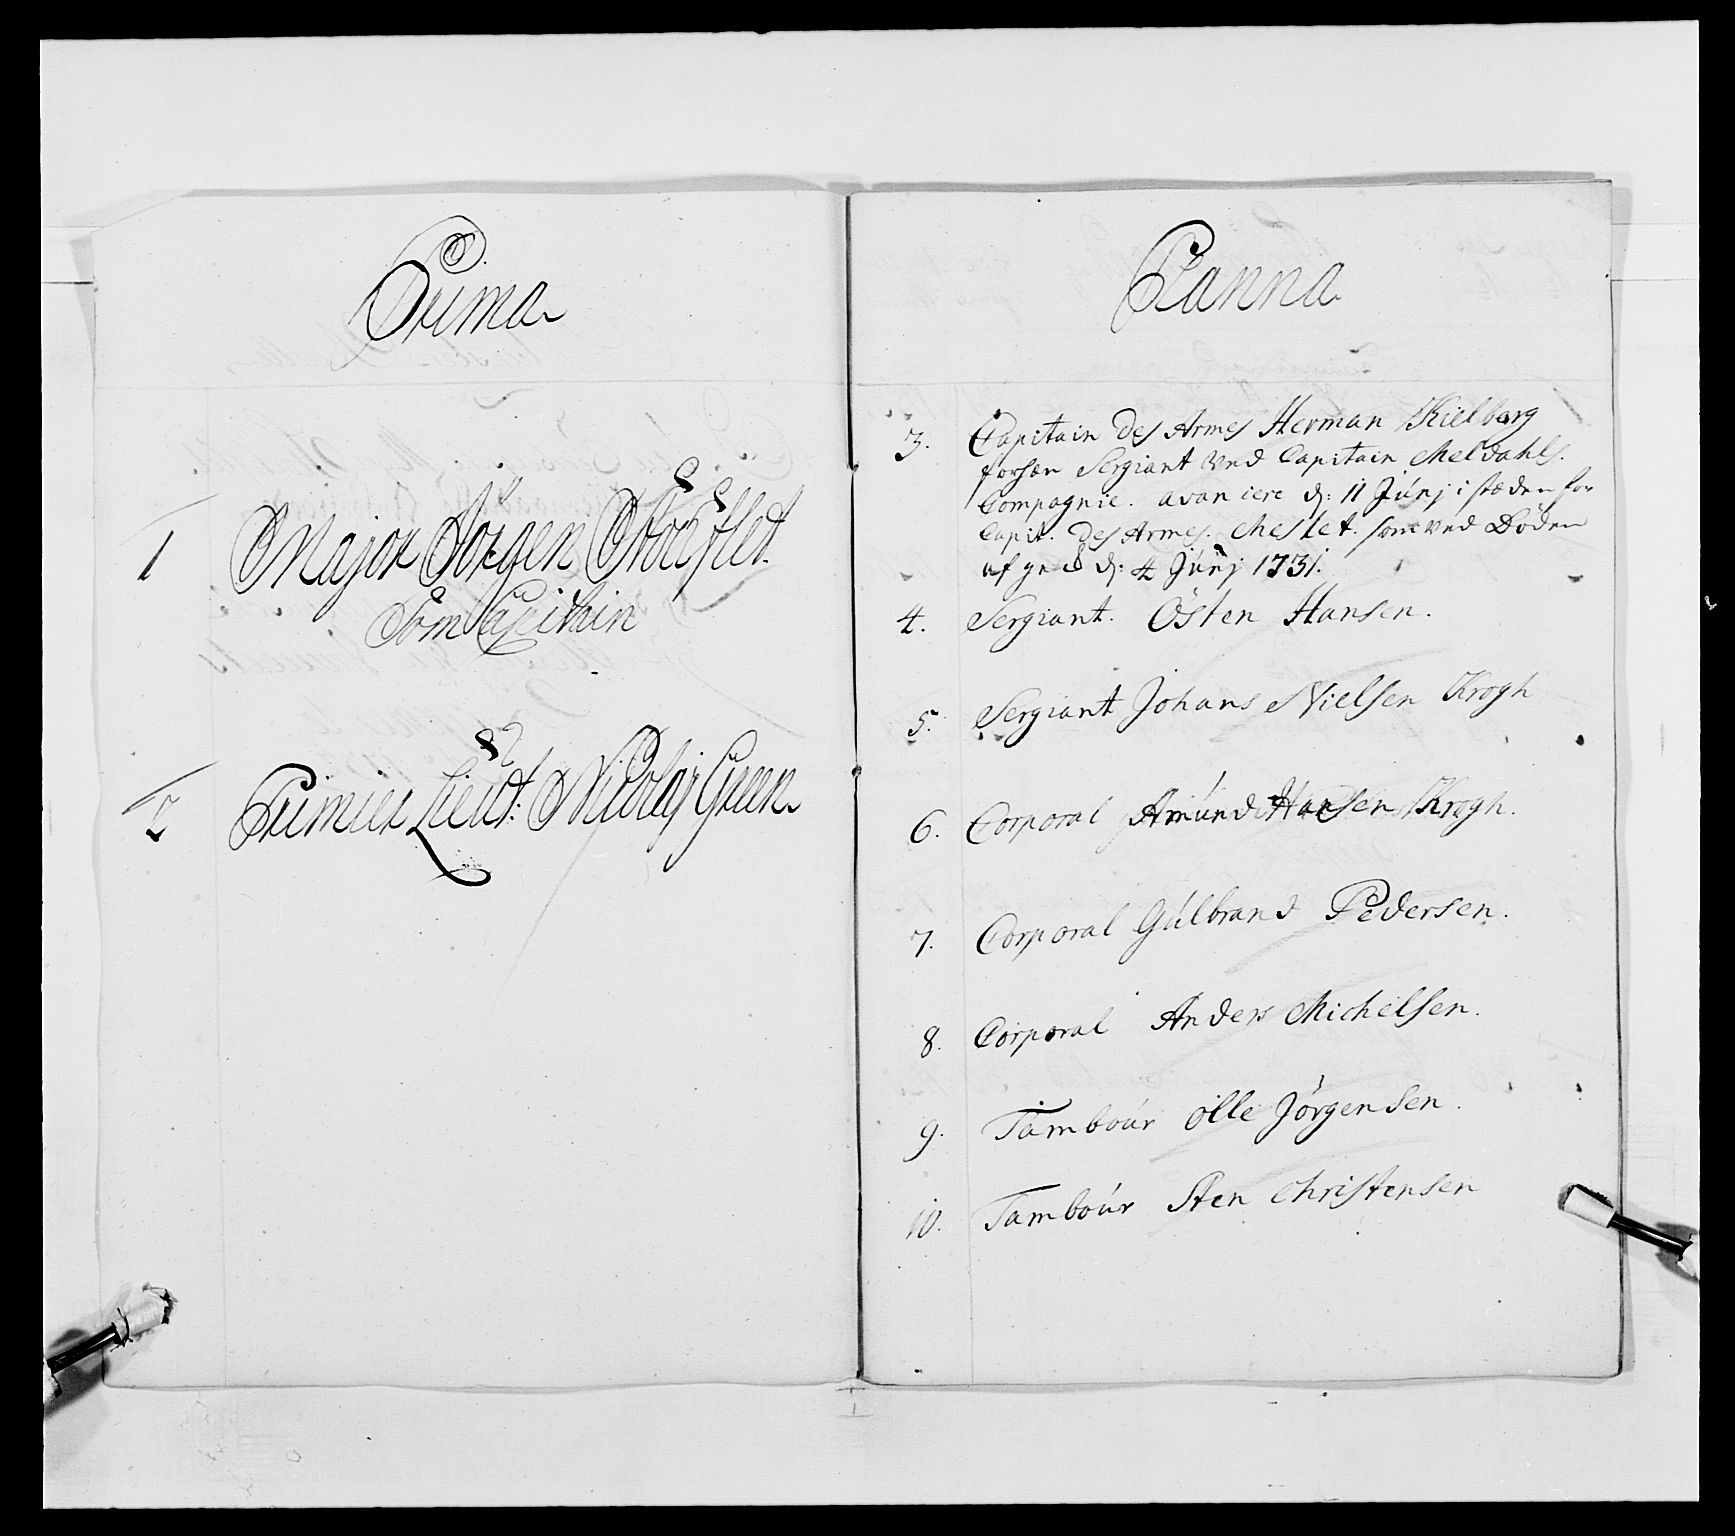 Prima
1 Major Jörgen Stocflet.
Som Capitain
2 Primier Lieut: Nicolaj Green.
Planna
3. Capitain des Armes Herman Kielberg
forhen Sergiant ved Capitain Meldahls.
Compagnie. avancere d: 11 Júnj i stæden for
Capit. des Armes. Meslet. som ved Döden
afgick d: 4 Júnj 1731.
4. Sergiant. Östen Hansen.
5. Sergiant Johans Nielsen Krogh
6. Corporal Amúnd Hansen Krogh.
7. Corporal Gúlbrand Pedersen.
8. Corporal Anders Michelsen.
9. Tamboúr Olle Jörgensen.
10. Tamboúr Sten Christensen